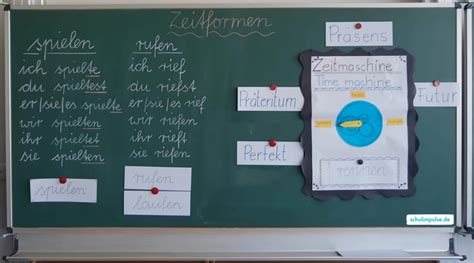 Zeitformen
spielen
ich spielte
du spieltest
er/sie/es spielte
wir spielten
ihr spieltet
sie spielten
spielen
rufen
ich rief
du riefst
er/sie/es rief
wir riefen
ihr rieft
sie riefen
rufen
laufen
Präsens
Zeitmaschine
Time machine
Präteritum
Futur
Perfekt
rennen
schulimpulse.de